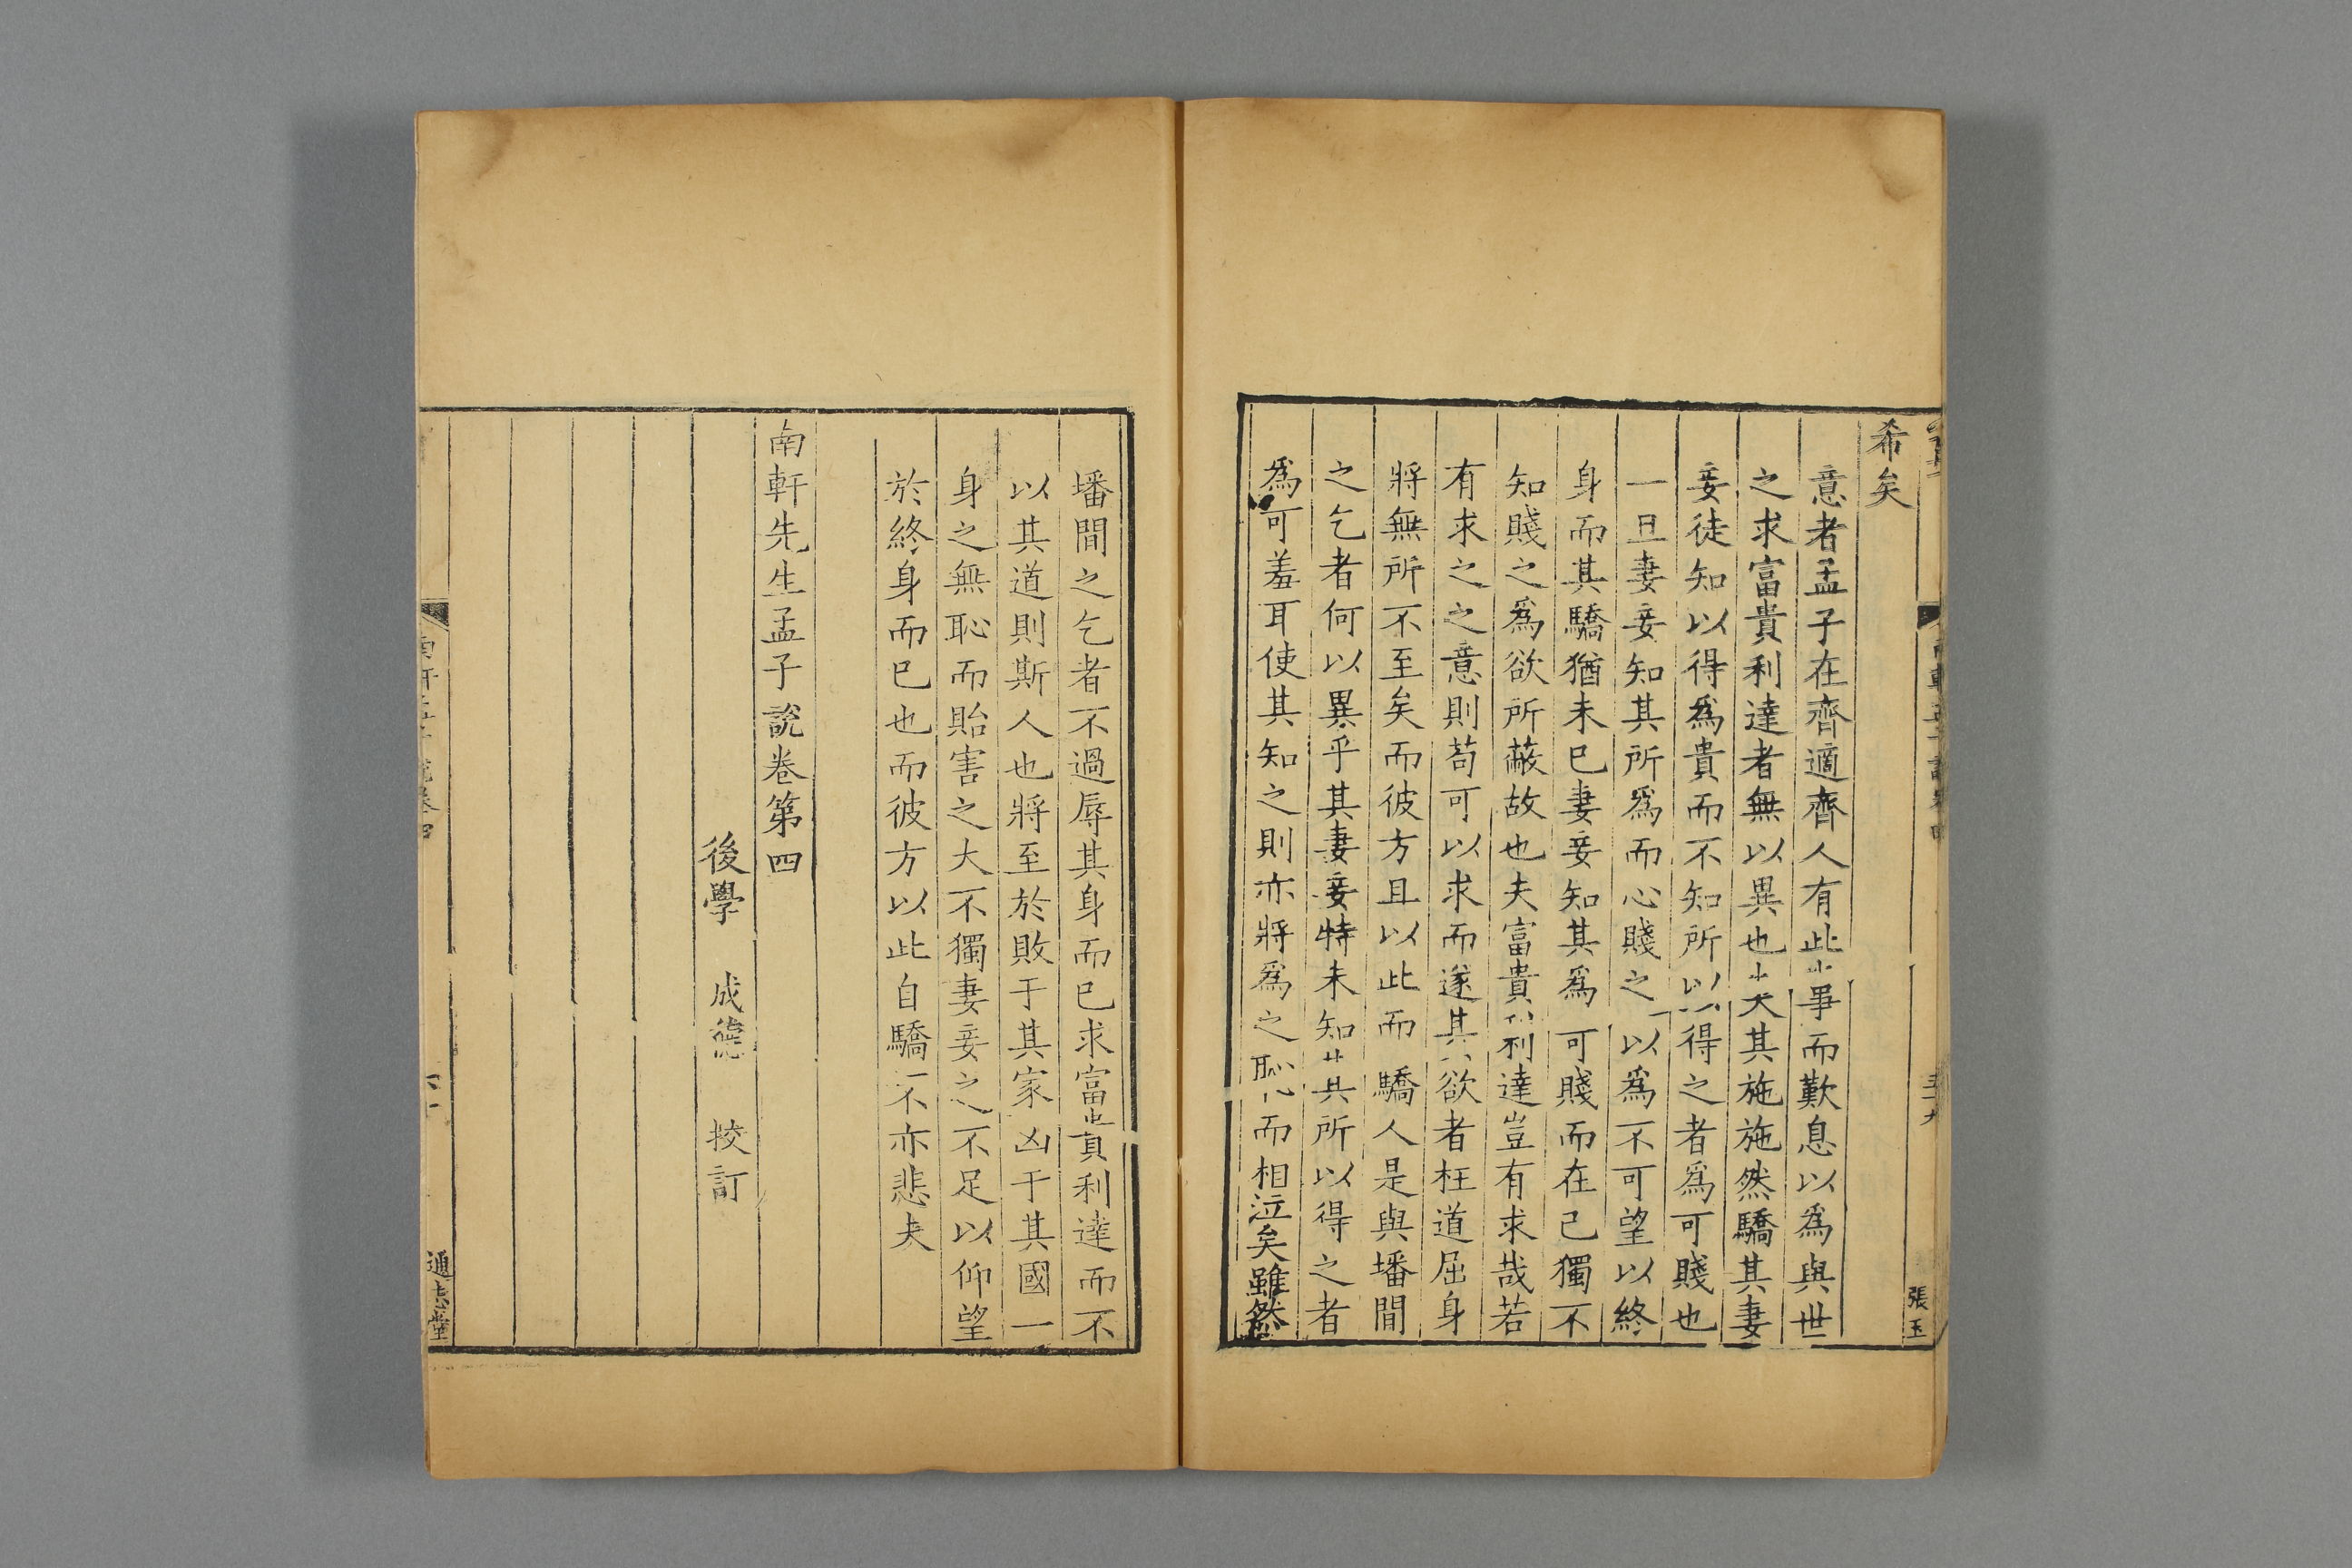 希矣
意者孟子在齊適齊人有此事而歎息以爲與世
之求富貴利達者無以異也夫其施施然驕其妻
妾徒知以得爲貴而不知所以得之者爲可賤也
一旦妻妾知其所爲而心賤之以爲不可望以終
身而其驕猶未已妻妾知其爲可賤而在己獨不
知賤之爲欲所蔽故也夫富貴利達豈有求哉若
有求之之意則苟可以求而遂其欲者枉道屈身
將無所不至矣而彼方且以此而驕人是與墦間
之乞者何以異乎其妻妾特未知其所以得之者
爲可羞耳使其知之則亦將爲之恥而相泣矣雖然
張玉
墦間之乞者不過辱其身而已求富貴利達而不
以其道則斯人也將至於敗于其家凶于其國一
身之無恥而貽害之大不獨妻妾之不足以仰望
於終身而已也而彼方以此自驕不亦悲夫
南軒先生孟子說卷第四
後學 成德 挍訂
通志堂